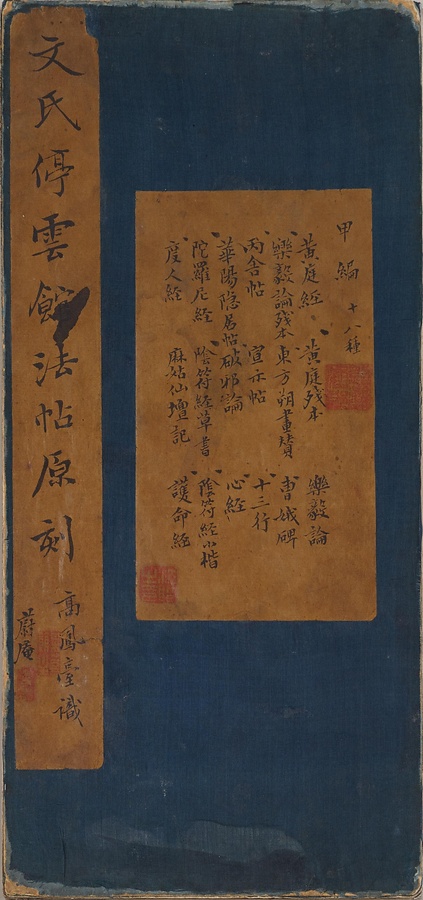 文氏停雲館法帖原刻
高鳳臺識
蔚庵
甲編 十八種
黃庭經 黃庭殘本 樂毅論
樂毅論殘本 東方朔畫贊 曹娥碑
丙舍帖 宣示帖 十三行
華陽隱居帖 破邪論 心經
陀羅尼經 陰符經草書 陰符經小楷
度人經 麻姑仙壇記 護命經